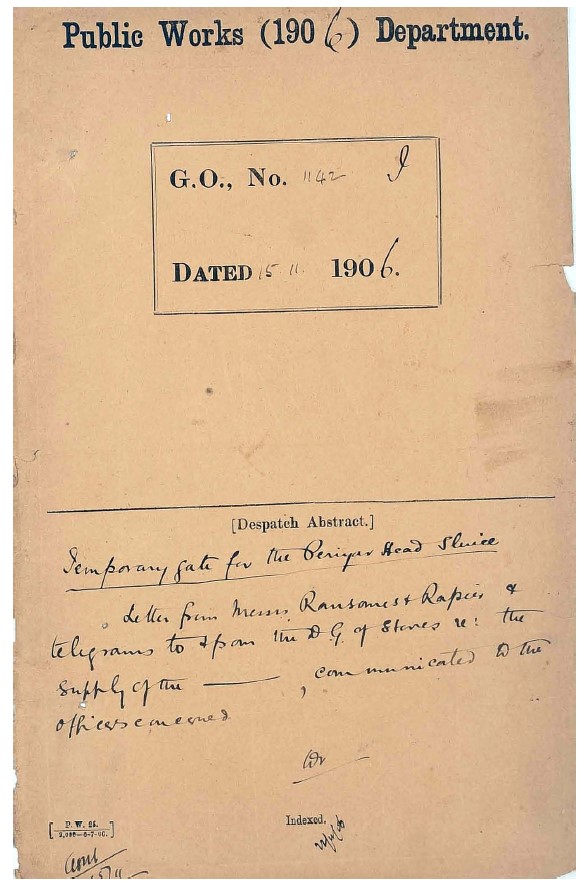 Public Works (1906) Department.
G.O., No. 1142 I
DATED 15.11. 1906.
[Despatch Abstract.]
Temporary gate for the Periyar Head Sluice
Letter from Messrs Ransomes & Rapier &
telegrams to & from the D.G. of Stores re: the
supply of the ——— , communicated to the
officers concerned
[P. W. 91.
2,000—6-7-06.]
Indexed,
15/11